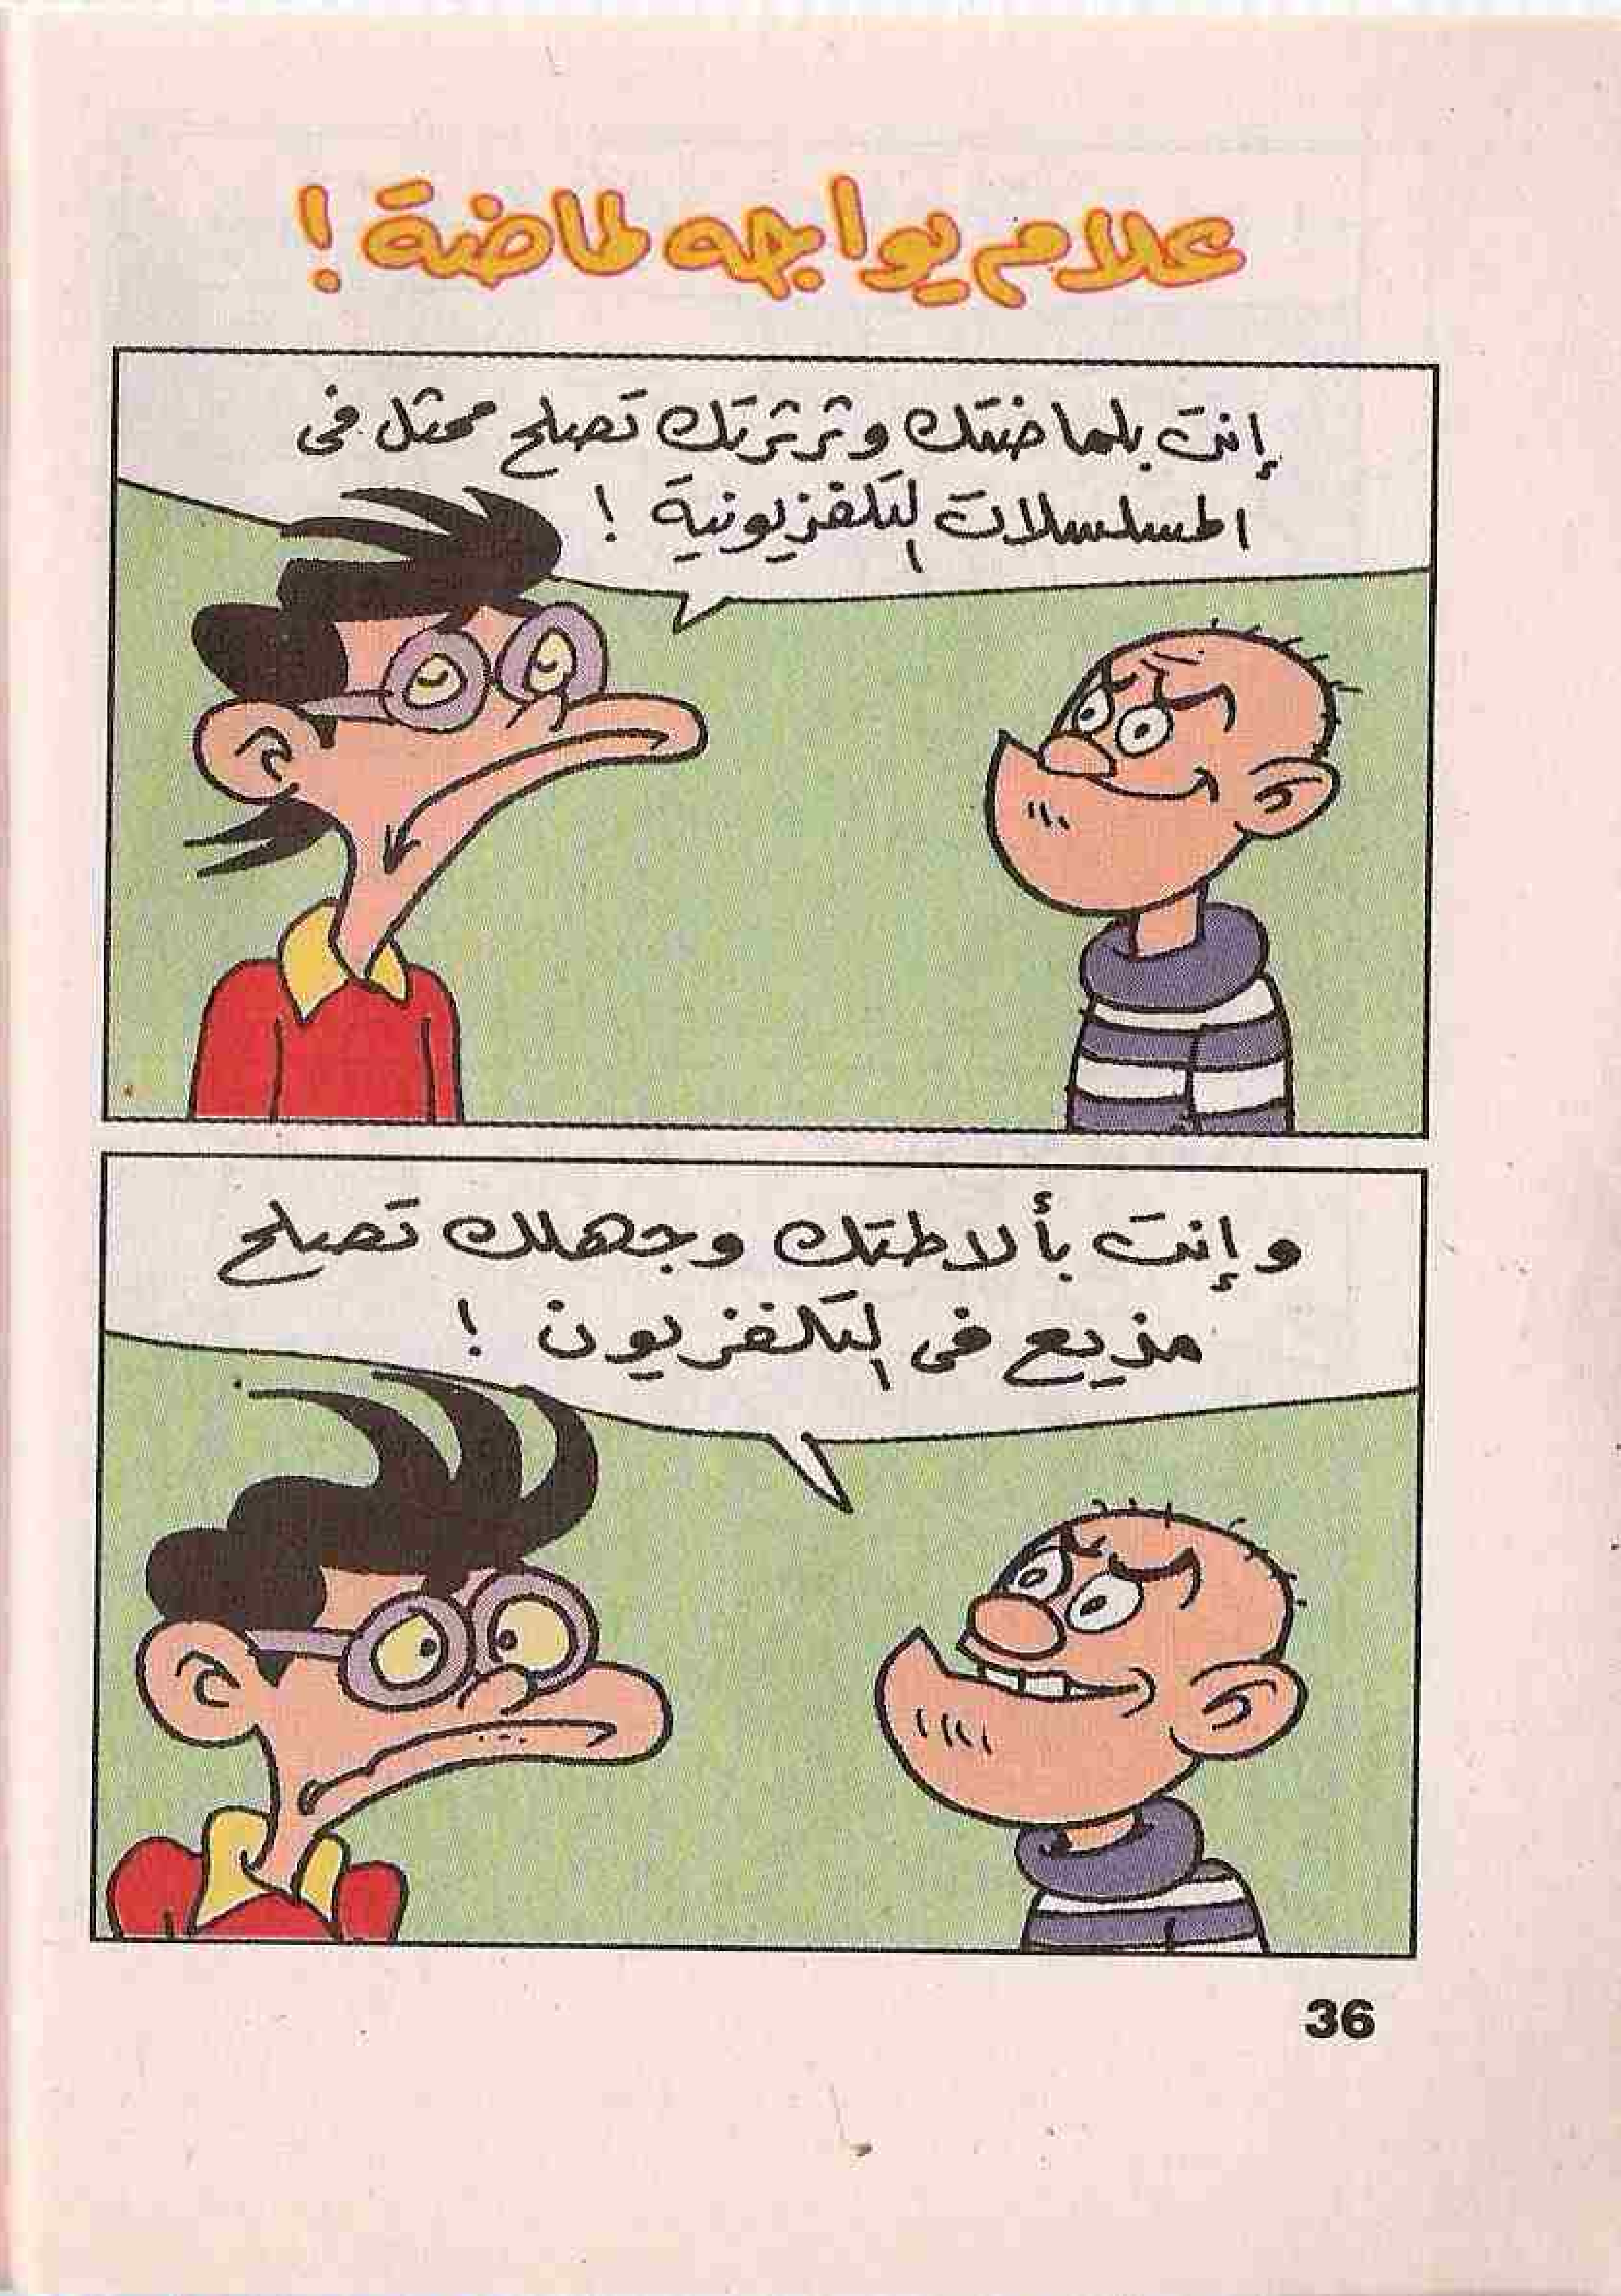 علام يواجه لماضة !
إنت بلماضتك وثرثرتك تصلح ممثل فى
المسلسلات التلفزيونية !
وإنت بألاطتك وجهلك تصلح
مذيع فى التلفزيون !
36